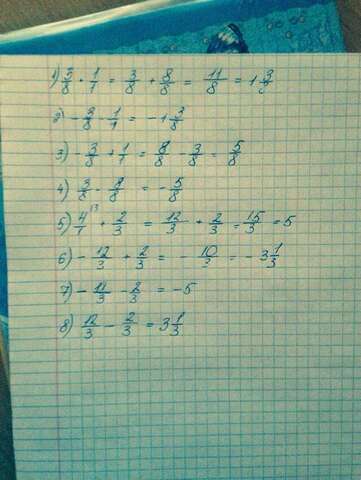 1) 3/8 + 1/1 = 3/8 + 8/8 = 11/8 = 1 3/8
2) - 3/8 - 1/1 = - 1 3/8
3) - 3/8 + 1/1 = 8/8 - 3/8 = 5/8
4) 3/8 - 8/8 = - 5/8
5) 4/1 + 2/3 = 12/3 + 2/3 = 15/3 = 5
6) - 12/3 + 2/3 = - 10/3 = - 3 1/3
7) - 2/3 = -5
8) 12/3 - 2/3 = 3 1/3